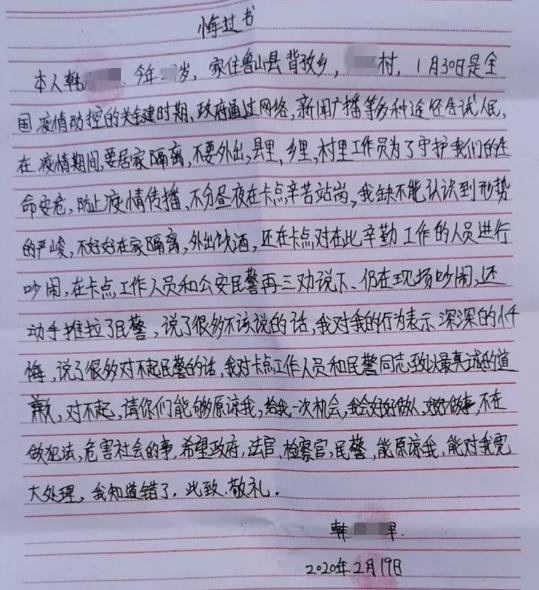 悔过书
本人韩 今年 岁，家住鲁山县背孜乡， 村，1月30日是全
国疫情防控的关键时期，政府通过网络，新闻广播等多种途径告诫人民，
在疫情期间，要居家隔离，不要外出，县里，乡里，村里工作员为了守护我们的生
命安危，防止疫情传播，不分昼夜在卡点辛苦站岗，我缺不能认识到形势
的严峻，不好好在家隔离，外出饮酒，还在卡点对在此辛勤工作的人员进行
吵闹，在卡点工作人员和公安民警再三劝说下，仍在现场吵闹，还
动手推拉了民警，说了很多不该说的话，我对我的行为表示深深的忏
悔，说了很多对不起民警的话，我对卡点工作人员和民警同志致以最真诚的道
歉，对不起，请你们能够原谅我，给我一次机会，我会好好做人，好好做事，不在
做犯法，危害社会的事，希望政府，法官，检察官，民警，能原谅我，能对我宽
大处理，我知道错了。此致.敬礼。
韩
2020年2月19日